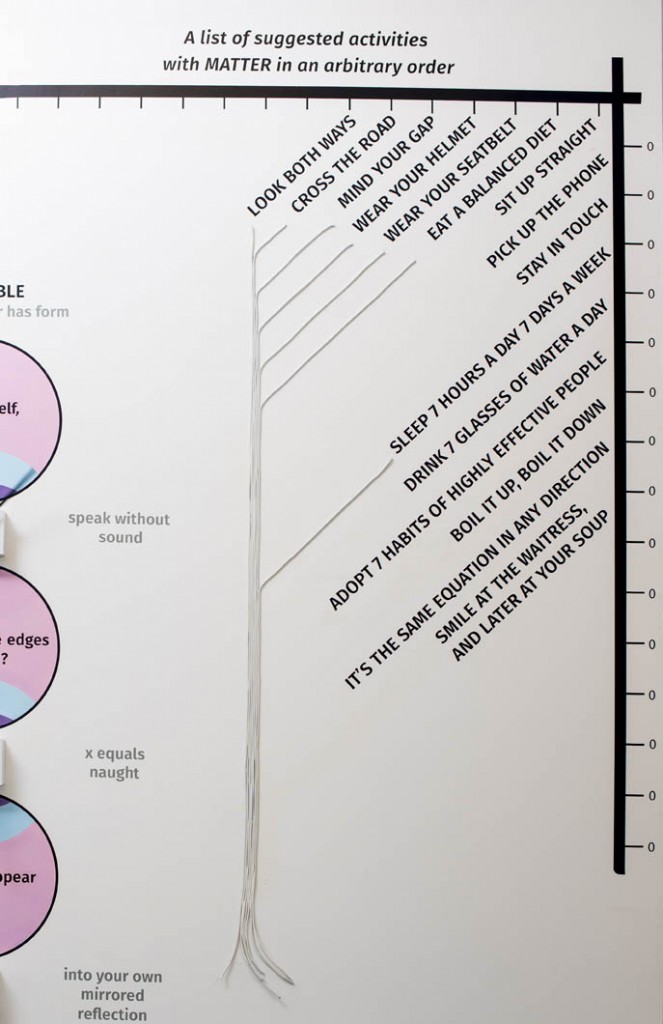 A list of suggested activities
with MATTER in an arbitrary order
LOOK BOTH WAYS
CROSS THE ROAD
MIND YOUR GAP
WEAR YOUR HELMET
WEAR YOUR SEATBELT
EAT A BALANCED DIET
SIT UP STRAIGHT
PICK UP THE PHONE
STAY IN TOUCH
SLEEP 7 HOURS A DAY 7 DAYS A WEEK
DRINK 7 GLASSES OF WATER A DAY
ADOPT 7 HABITS OF HIGHLY EFFECTIVE PEOPLE
BOIL IT UP, BOIL IT DOWN
IT'S THE SAME EQUATION IN ANY DIRECTION
SMILE AT THE WAITRESS,
AND LATER AT YOUR SOUP
0
0
0
0
0
0
0
0
0
0
0
0
0
0
0
has form
speak without
sound
edges
?
x equals
naught
into your own
mirrored
reflection